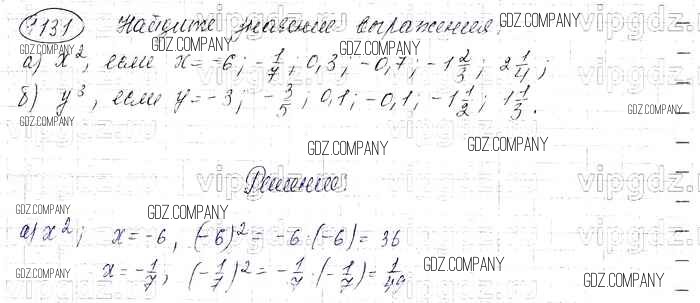 1131 Найдите значение выражения:
GDZ.COMPANY GDZ.COMPANY GDZ.COMPANY
а) x², если x = -6; -1/7; 0,3; -0,7; -1 2/3; 2 1/4;
б) y³, если y = -3; -3/5; 0,1; -0,1; -1 1/2; 1 1/3.
GDZ.COMPANY GDZ.COMPANY GDZ.COMPANY
GDZ.COMPANY GDZ.COMPANY
vipgdz.ru
Решение:
GDZ.COMPANY GDZ.COMPANY
а) x²; x = -6, (-6)² = -6·(-6) = 36
GDZ.COMPANY
x = -1/7, (-1/7)² = -1/7·(-1/7) = 1/49
GDZ.COMPANY GDZ.COMPANY GDZ.COMPANY GDZ.COMPANY